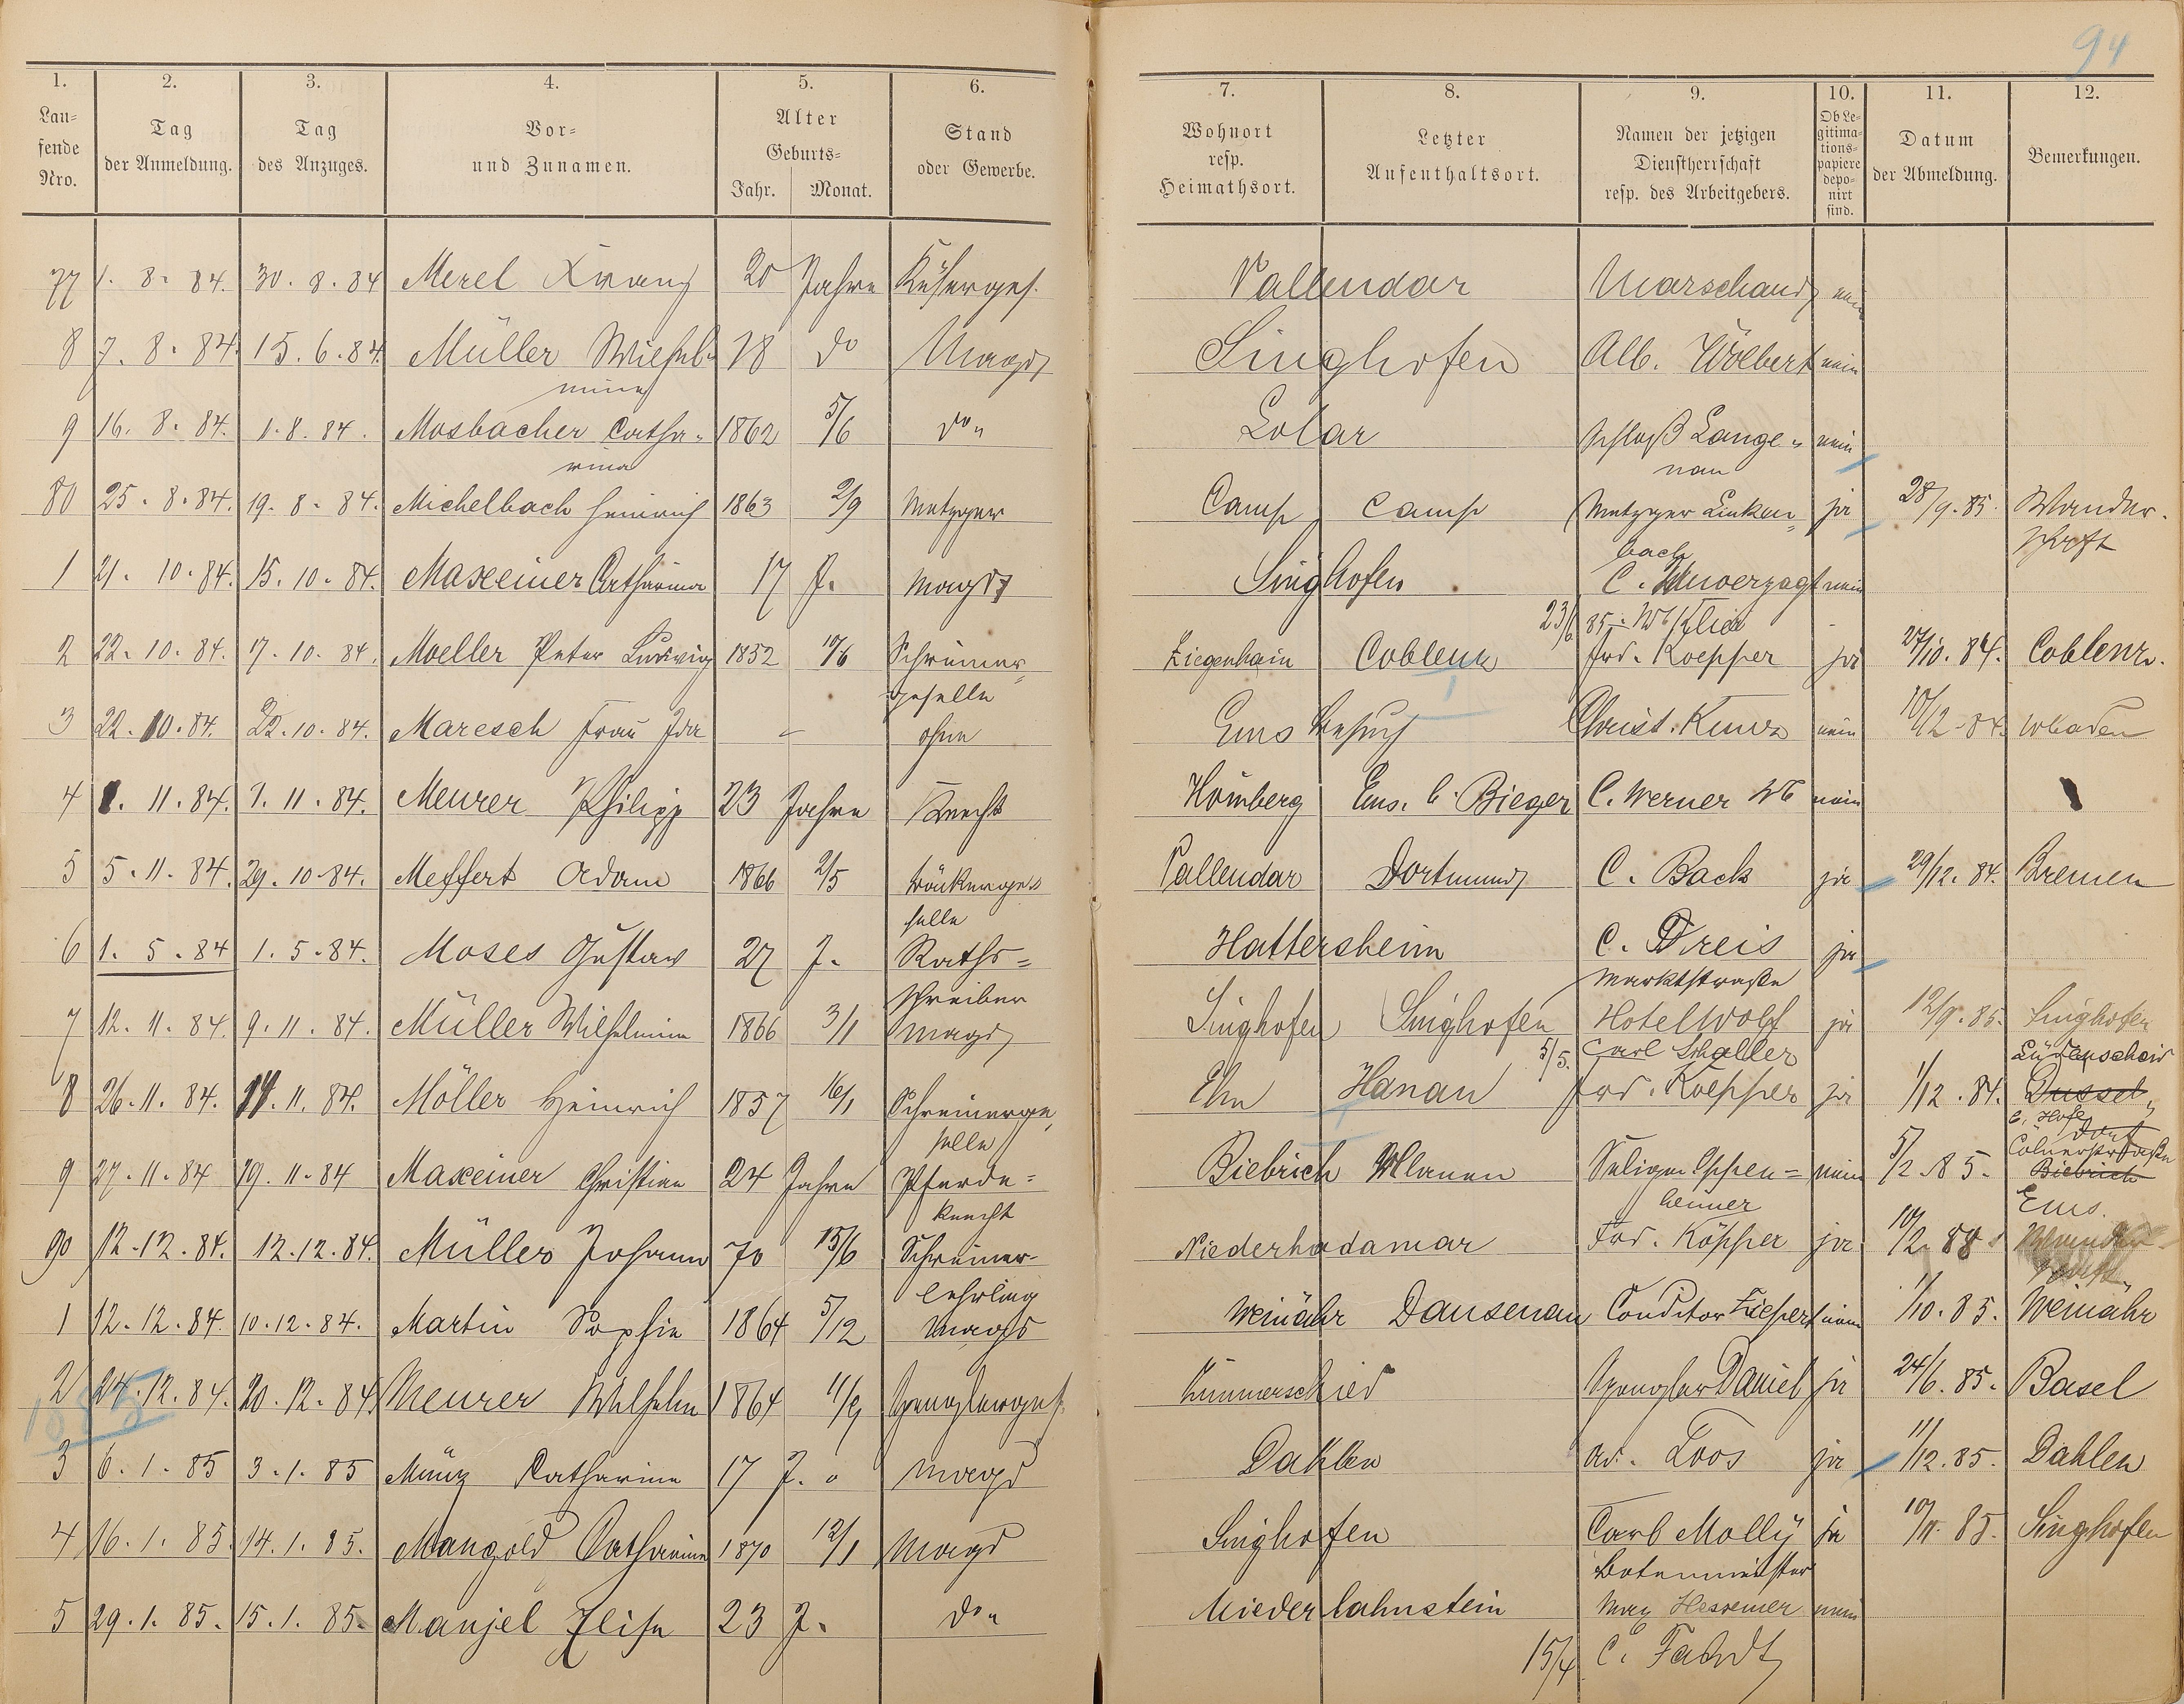 94
1. 2. 3. 4. 5. 6. 7. 8. 9. 10. 11. 12.
Lau-
fende
Nro.
Tag
der Anmeldung.
Tag
des Anzuges.
Vor-
und Zunamen.
Alter
Geburts-
Jahr. Monat.
Stand
oder Gewerbe.
Wohnort
resp.
Heimathsort.
Letzter
Aufenthaltsort.
Namen der jetzigen
Dienstherrschaft
resp. des Arbeitgebers.
Ob Le-
gitima-
tions-
papiere
depo-
nirt
sind.
Datum
der Abmeldung.
Bemerkungen.
77 1. 8. 84. 30. 8. 84 Merel Franz 20 Jahre Küferges. Vallendar Marschand nein
8 7. 8. 84. 15. 6. 84. Müller Wilhel- 18 do Magd Singhofen Alb. Wölbert nein
mine
9 16. 8. 84. 1. 8. 84. Mosbacher Catha- 1862 5/6 do Lolar Schloß Lange- nein
rina nau
80 25. 8. 84. 19. 8. 84. Michelbach Heinrich 1863 2/9 Metzger Camp Camp Metzger Linken- ja 28/9. 85. Wander-
bach schaft
1 21. 10. 84. 15. 10. 84. Maxeiner Catharina 17 J. Magd Singhofen C. Unverzagt nein
23/6 85. Wb Klein
2 22. 10. 84. 17. 10. 84. Moeller Peter Ludwig 1852 10/6 Schreiner- Ziegenhain Coblenz Frd. Koepper ja 27/10. 84. Coblenz.
geselle
3 22. 10. 84. 22. 10. 84. Maresch Frau Ida - ohne Ems Besuch Christ. Kunz nein 10/12. 84. Wbaden
4 1. 11. 84. 1. 11. 84. Meurer Philipp 23 Jahre Knecht Homberg Ems. b. Bieger C. Werner Wb nein
5 5. 11. 84. 29. 10. 84. Meffert Adam 1866 2/5 Vallendar Dortmund C. Back ja 29/12. 84. Bremen
selle
6 1. 5. 84 1. 5. 84. Moses Gustav 27 J. Raths- Hattersheim C. Dreis ja
schreiber Marktstraße
7 12. 11. 84. 9. 11. 84. Müller Wilhelmine 1866 3/1 Magd Singhofen Singhofen Hotel Wolf ja 12/9. 85. Singhofen
5/5. Carl Schaller Lüdenscheid
8 26. 11. 84. 11. 84. Möller Heinrich 1857 16/1 Schreinerge- Hanau Frd. Koepper ja 1/12. 84. Dussel-
selle dorf
Cölnerstraße
9 27. 11. 84 19. 11. 84 Maxeiner Christian 24 Jahre Pferde- Biebrich Seligm. Oppen- nein 5/2. 85. Biebrich
knecht heimer Ems.
90 12. 12. 84. 12. 12. 84. Müller Johann 70 15/6 Schreiner- Niederhadamar Frd. Köpper ja 10/2. 88
lehrling
1 12. 12. 84. 10. 12. 84. Martin Sophie 1864 5/12 Magd Weinähr Dausenau Conditor Ziepert nein 1/10. 85. Weinähr
2 24. 12. 84. 20. 12. 84. Meurer Wilhelm 1864 11/9 Spenglerges. Kummerschied Spengler Daniel ja 24/6. 85. Basel
1885
3 6. 1. 85 3. 1. 85 Münz Catharina 17 J. Magd Dahlen Ad. Loos ja 11/12. 85. Dahlen
4 16. 1. 85. 14. 1. 85. Mangold Catharina 1870 12/1 Magd Singhofen Carl Molly ja 10/11. 85. Singhofen
Botenmeister
5 29. 1. 85. 15. 1. 85. Manjel Elise 23 J. do Niederlahnstein Max Hessemer nein
15/4 C. Fahdt